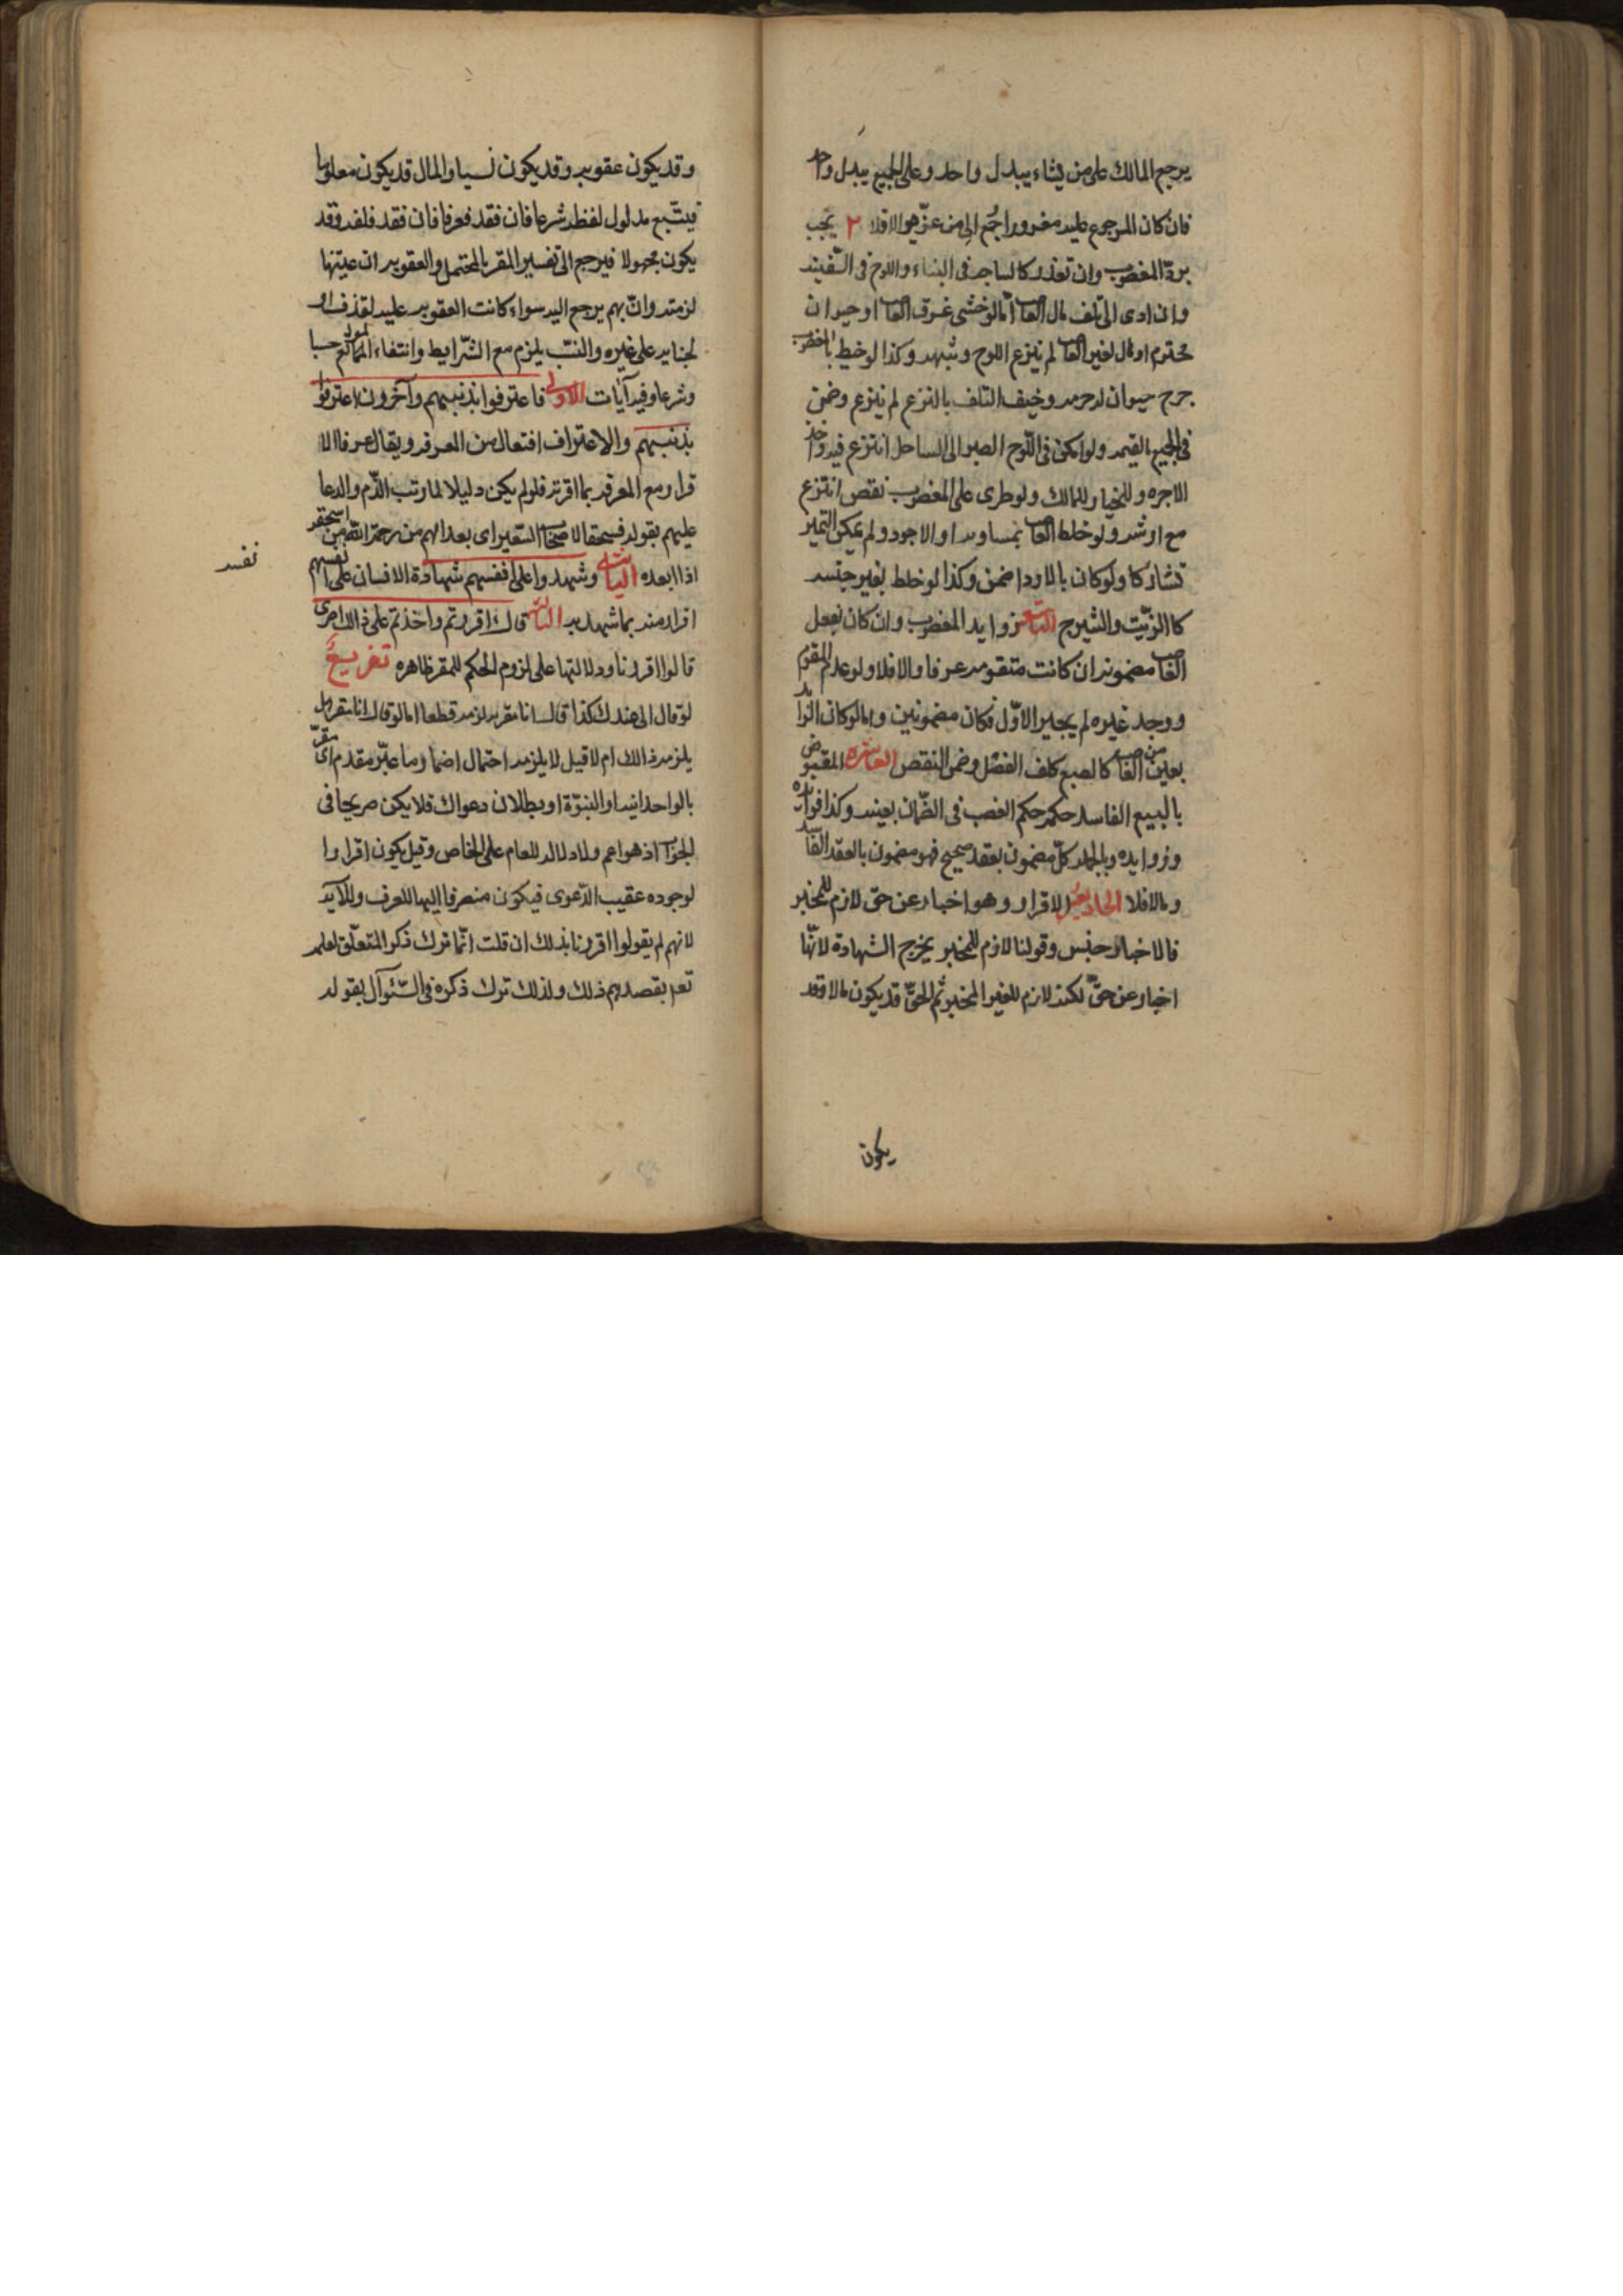 يرجع المالك على من يشاء ببدل واحد وعلى الجميع ببدل واحد
فان كان المرجوع عليه مغرورا رجع الى من غره والا فلا ٢ يجب
برد المغصوب وان تعذر كالساجه فى البناء واللوح فى السفينه
وان ادى الى تلف مال الغاصب اما لو خشى غرق الغاصب او حيوان
محترم او مال لغير الغاصب لم ينزع اللوح وشبهه وكذا لو خيط بالمغصوب
جرح حيوان له حرمه وخيف التلف بالنزع لم ينزع وضمن
فى الجميع القيمه ولو امكن فى اللوح الصبر الى الساحل انتزع فيه واخذ
الاجره والخيار للمالك ولو طرى على المغصوب نقص انتزع
مع ارشه ولو خلط الغاصب بمساويه او الاجود ولم يمكن التميز
تشاركا ولو كان بالاردا ضمن وكذا لو خلط بغير جنسه
كالزيت والشيرج التاسع زوايد المغصوب وان كان بفعل
الغاصب مضمونه ان كانت متقومه عرفا والا فلا ولو عدم المقوم
ووجد غيره لم يجبر الاول فكان مضمونين وامالو كان الزايد
بعين من الغاصب كالصبغ كلف الفصل وضمن النقص العاشره المقبوض
بالبيع الفاسد حكمه حكم الغصب فى الضمان بعينه وكذا فوايده
وزوايده وبالجمله كل مضمون بعقد صحيح فهو مضمون بالعقد الفاسد
ومالا فلا الحاديعشر الاقرار وهو اخبار عن حق لازم للمخبر
فالاخبار جنس وقولنا لازم للمخبر يخرج الشهادة لانها
اخبار عن حق لكنه لازم للغير المخبر ثم الحق قد يكون مالا وقد
يكون
وقد يكون عقوبه وقد يكون نسبا والمال قد يكون معلوما
فيتبع مدلول لفظه شرعا فان فقد فعرفا فان فقد فلغه وقد
يكون مجهولا فيرجع الى تفسير المقر بالمحتمل والعقوبه ان عينها
لزمته وان ابهم يرجع اليه سواء كانت العقوبه عليه لقذف او
لجنايه على غيره والنسب يلزم مع الشرايط وانتفاء الموانع حسا
وشرعا وفيه آيات الاولى فاعترفوا بذنبهم وآخرون اعترفوا
بذنبهم والاعتراف افتعال من المعرفه ويقال عرفا الا
قرار مع المعرفه بما اقر به فلو لم يكن دليلا لما رتب الذم والدعا
عليهم بقوله فسحقا لاصحاب السعير اى بعدا لهم من رحمة الله من اسحقه
اذا ابعده الثانيه وشهدوا على انفسهم شهادة الانسان على نفسهم
نفسه
اقرار منه بما شهد به الثالثه قال ءاقررتم واخذتم على ذالك اصرى
قالوا اقررنا ودلالتها على لزوم الحكم للمقر ظاهره تفريع
لو قال الى عندك كذا قال انا مقر به لزمه قطعا اما لو قال انا مقر هل
يلزمه ذالك ام لا قيل لا يلزمه احتمال اضمار ما غير مقدم اى مقر
بالواحدانيه او النبوة او ببطلان دعواك فلا يكن صريحا فى
الجواب اذ هو اعم ولا دلاله للعام على الخاص وقيل يكون اقرارا
لوجوده عقيب الدعوى فيكون منصرفا اليها للعرف وللايه
لانهم لم يقولوا اقررنا بذلك ان قلت انما ترك ذكر المتعلق لعلمه
تعا بقصدهم ذلك ولذلك ترك ذكره فى السئوآل بقوله